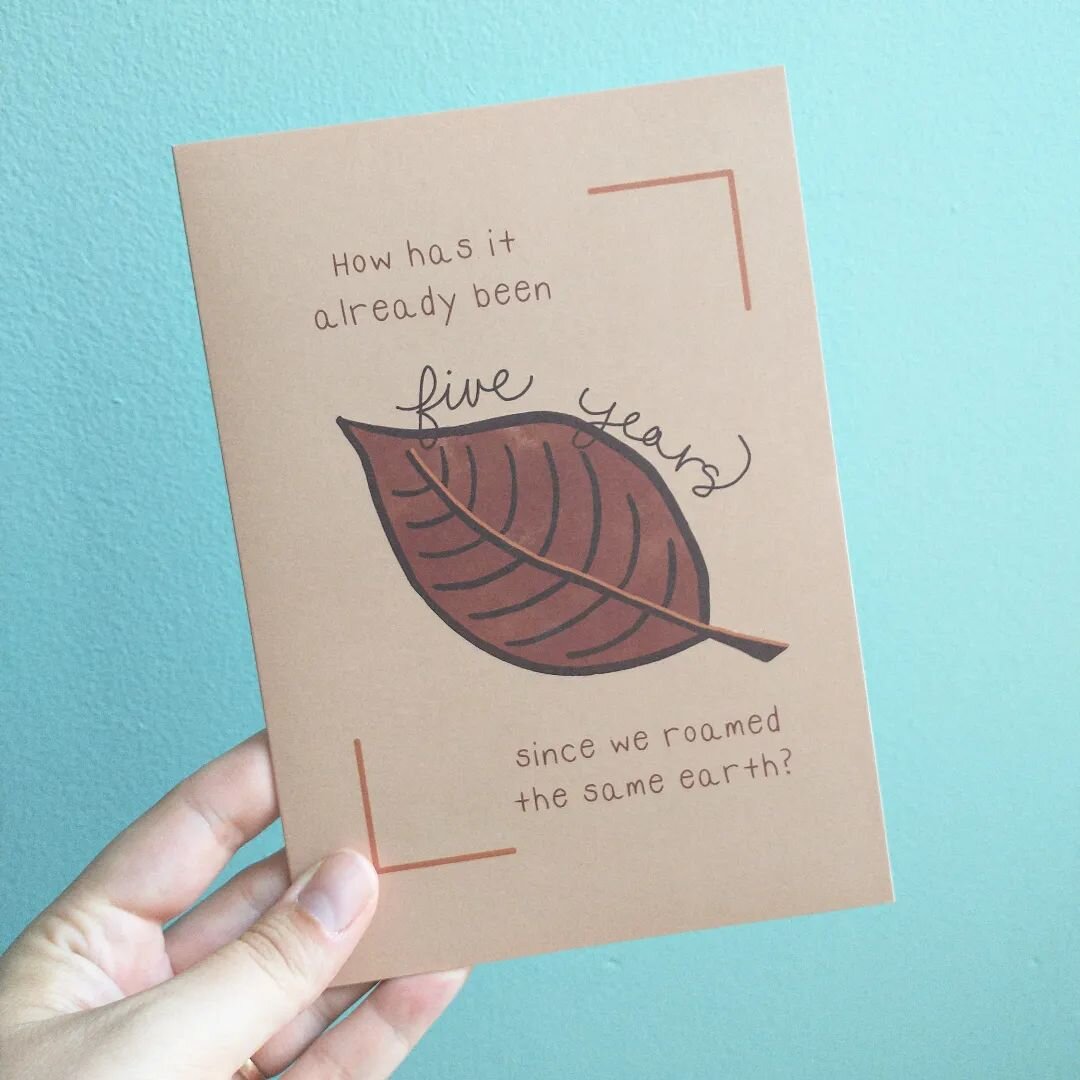 How has it
already been
five years
since we roamed
the same earth?